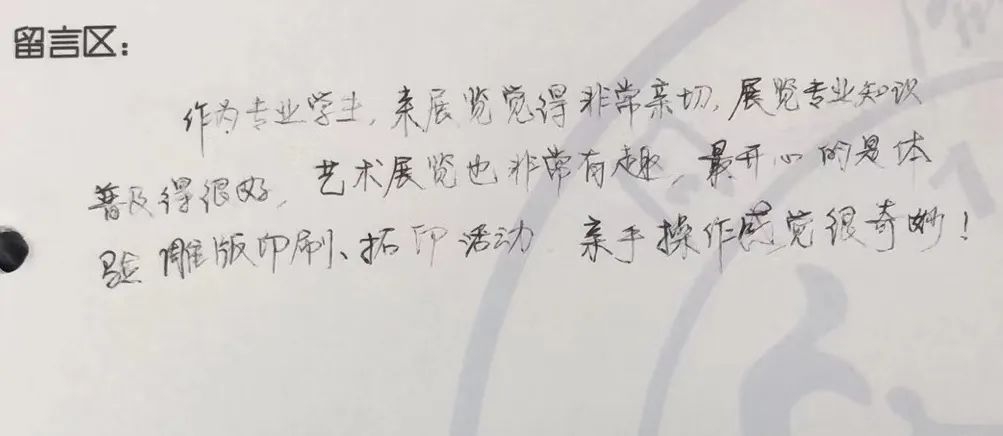 留言区：
作为专业学生，来展览觉得非常亲切，展览专业知识
普及得很好，艺术展览也非常有趣，最开心的是体
验雕版印刷、拓印活动 亲手操作感觉很奇妙！